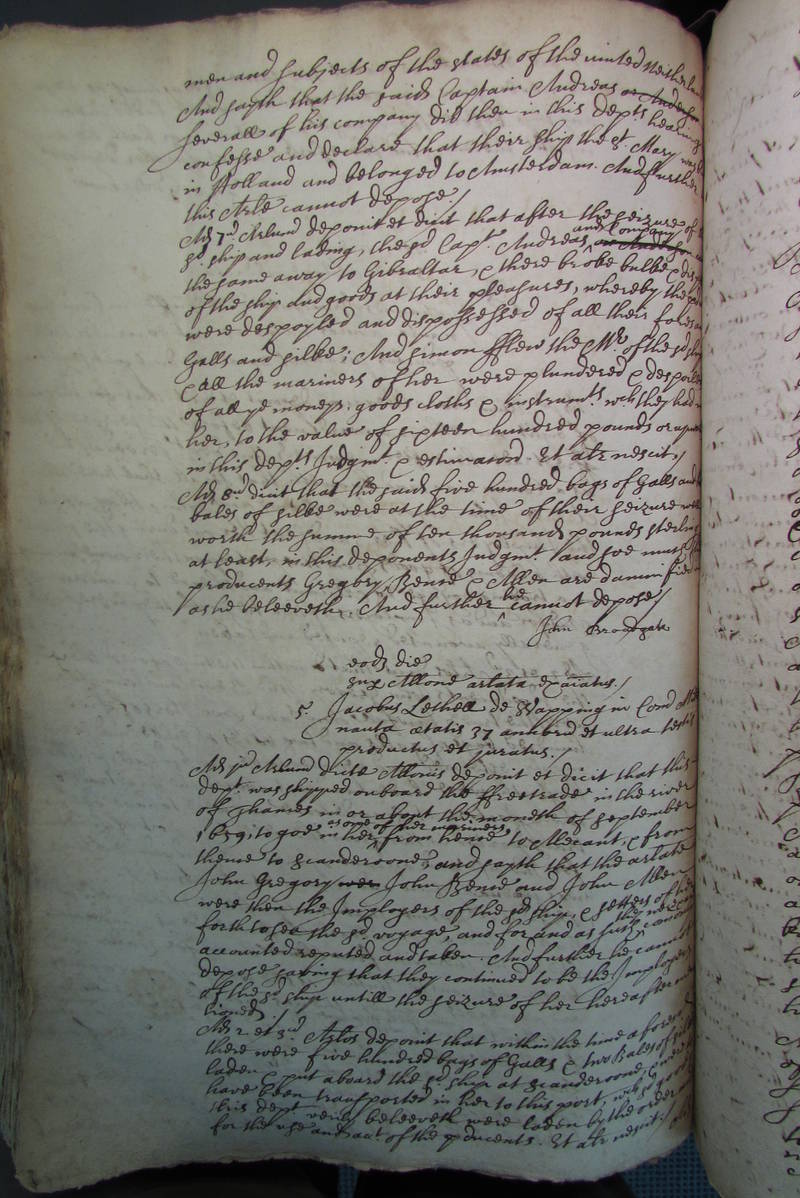 men and subjects of the states of the united Netherlan
And sayth that the said Captain Andreas or Anderson
severall of his company did then in this depts hearing
confesse and declare that their ship the St. Mary was
in Holland and belonged to Amsterdam. And further
this Arle cannot depose./
Ad 7um Arlum deponit et dicit that after the seizure of
sd ship and lading, the sd Capt. Andreas and Company or Anderson
the same away to Gibraltar, & there broke bulke & dis
of the ship and goods at their pleasures, whereby the
were despoyled and dispossessed of all their foresaid
Galls and silke; And Simon fflew the Mr. of the sd ship
& all the mariners of her were plundered & despoiled
of all ye moneys. goods cloths & instrumts. wch they had in
her, to the value of sixteen hundred pounds or upwards
in this depts Judgmt. & estimacon. Et alr nescit./
Ad 8um dicit that the said five hundred bags of Galls and
bales of silke were at the time of their seizure well
worth the summe of ten thousand pounds sterling
at least, in this deponents Judgmt and soe much the
producents Gregory, Bence & Allen are damnified
as he beleeveth. And further he cannot depose/
John
eodm die
sup Allone arlata exaiatus./
5. Jacobus Lethell de Wapping in Com Midd
nauta ætatis 37 annoru et ultra testis
productus et juratus./
Ad jum Arlum dictæ Allonis deponit et dicit that this
dept was shipped onboard the ffreetrade in the river
of Thames in or about the moneth of September
1659, to goe in her as one of her mariners from hence to Alecant, & from
thence to Scanderoone; and sayth that the arlate
John Gregory were John Bence and John Allen
were then the Imployers of the sd ship, & setters of her
forth to sea the sd voyage, and for and as such they were comonly
accounted reputed and taken. And further he cannot
depose saving that they continued to be the Imployers
of the sd ship untill the seizure of her hereafter men
tioned./
Ad 2. et 3um Arlos deponit that within the time aforesd
there were five hundred bags of Galls & two Bales of silke
laden & put aboard the sd ship at Scanderoone, & were to
have been transported in her to this port, wch sd goods
this dept verily beleeveth were laden by the order and
for the use and act of the pducents. Et alr nescit./